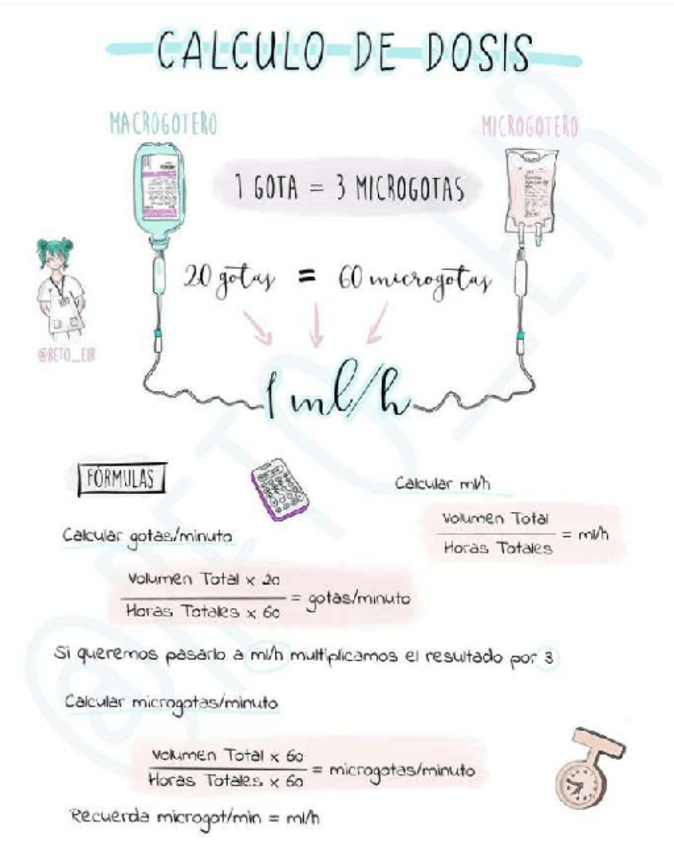 CALCULO DE DOSIS
MACROGOTERO
MICROGOTERO
1 GOTA = 3 MICROGOTAS
20 gotas = 60 microgotas
@RETO_EIR
1 ml/h
FÓRMULAS
Calcular ml/h
Volumen Total
Horas Totales
= ml/h
Calcular gotas/minuto
Volumen Total x 20
Horas Totales x 60
= gotas/minuto
Si queremos pasarlo a ml/h multiplicamos el resultado por 3
Calcular microgotas/minuto
Volumen Total x 60
Horas Totales x 60
= microgotas/minuto
Recuerda microgot/min = ml/h
@RETO_EIR